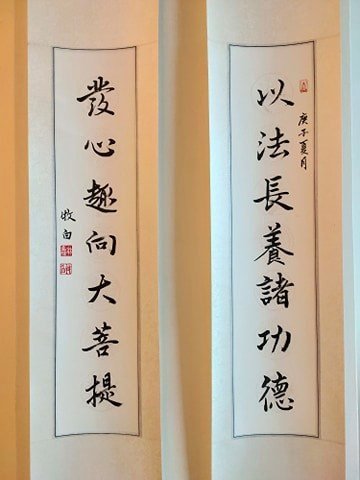 以法長養諸功德
庚子夏月
發心趣向大菩提
牧白